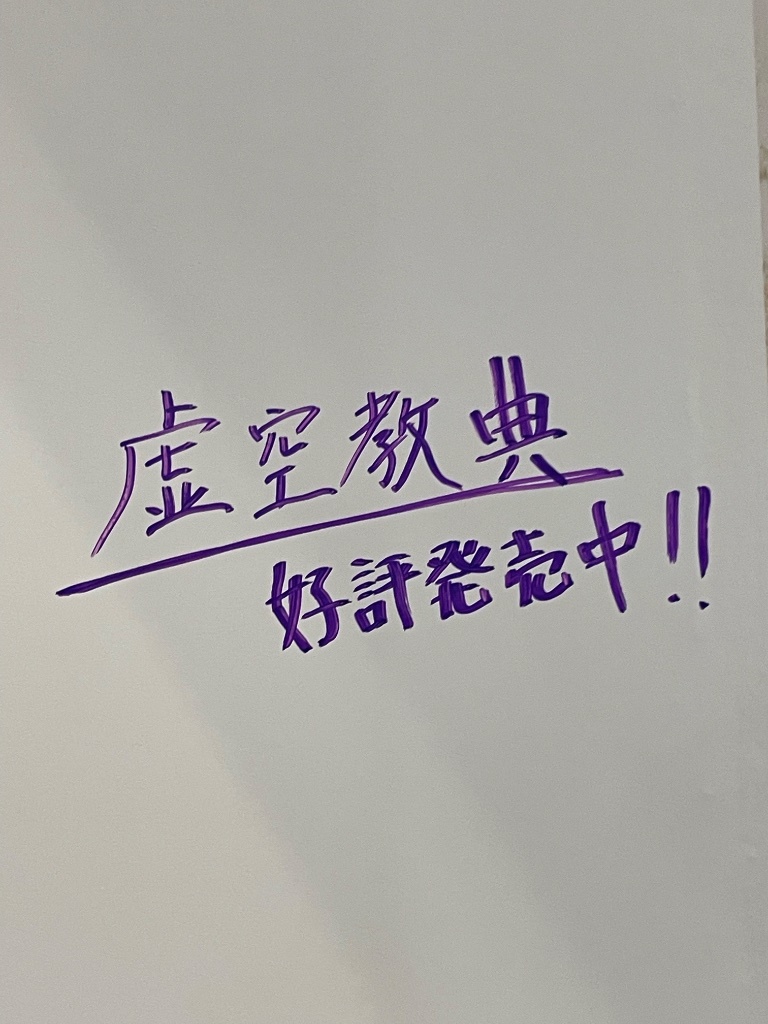 虚空教典
好評発売中!!